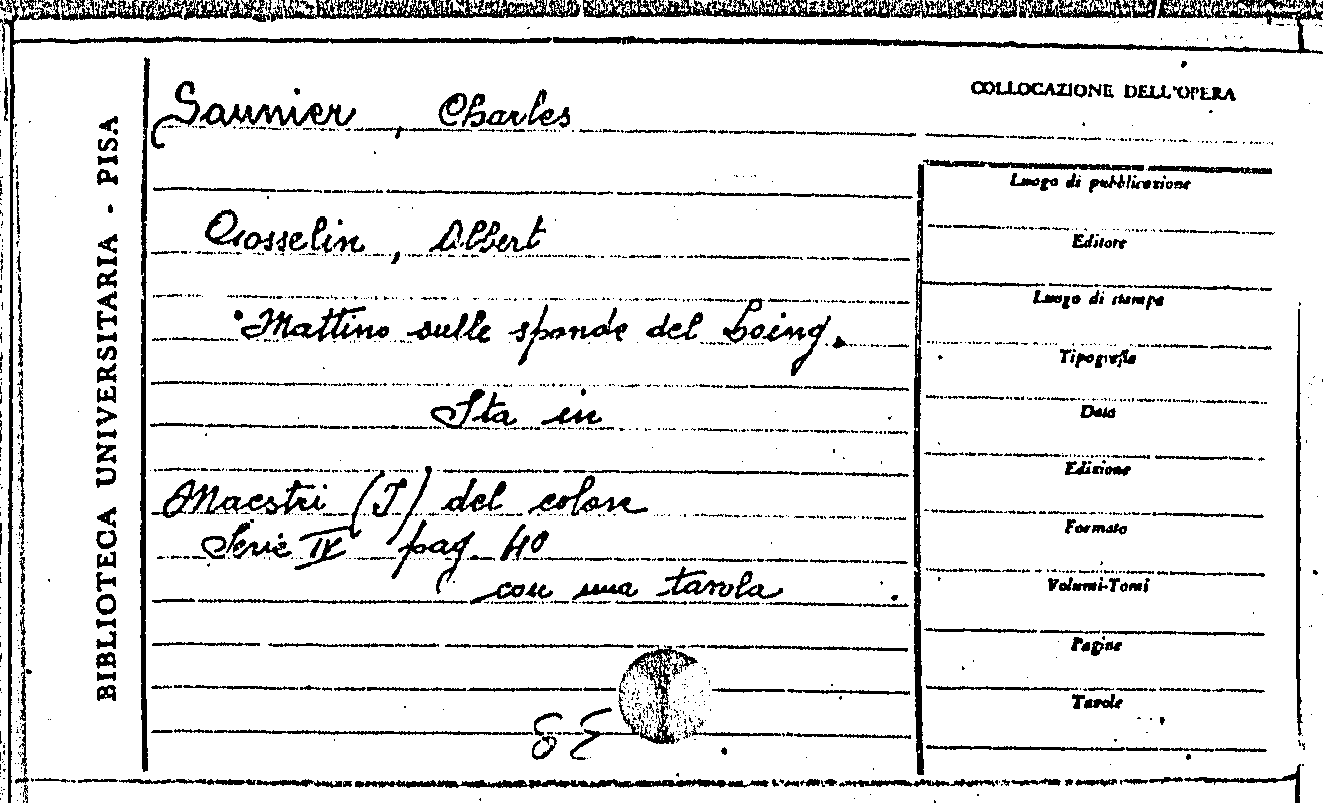 BIBLIOTECA UNIVERSITARIA - PISA
Saunier, Charles
Gosselin, Albert
Mattino sulle sponde del Loing.
Sta in
Maestri (I) del colore
Serie IV pag. 40
con una tavola
8 E
COLLOCAZIONE DELL'OPERA
Luogo di pubblicazione
Editore
Luogo di stampa
Tipografia
Data
Edizione
Formato
Volumi-Tomi
Pagine
Tavole